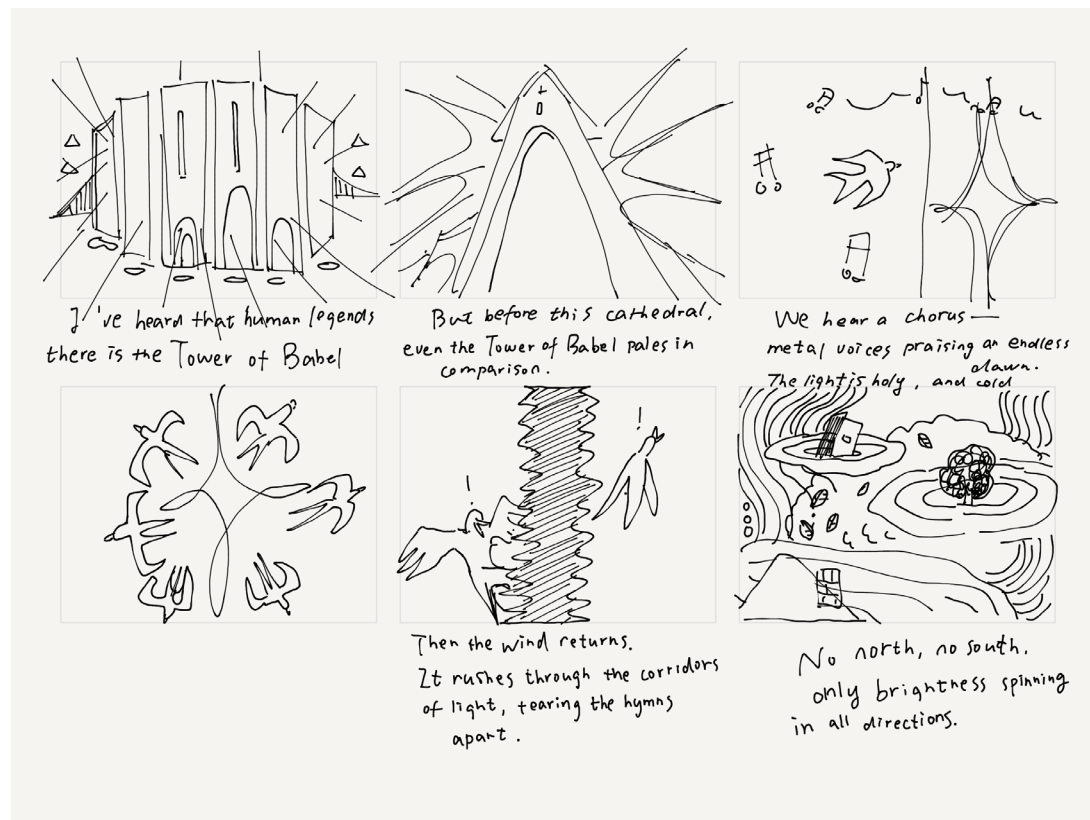 I've heard that human legends
there is the Tower of Babel
But before this cathedral,
even the Tower of Babel pales in
comparison.
We hear a chorus —
metal voices praising an endless
dawn.
The light is holy, and cold
!
!
Then the wind returns.
It rushes through the corridors
of light, tearing the hymns
apart.
No north, no south.
only brightness spinning
in all directions.